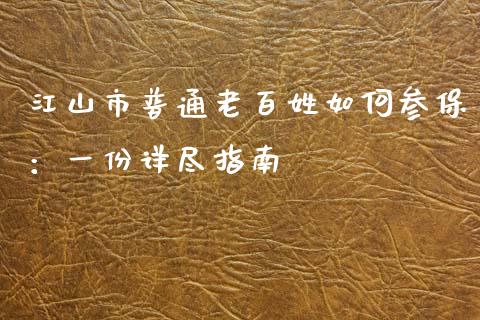 江山市普通老百姓如何参保
：一份详尽指南